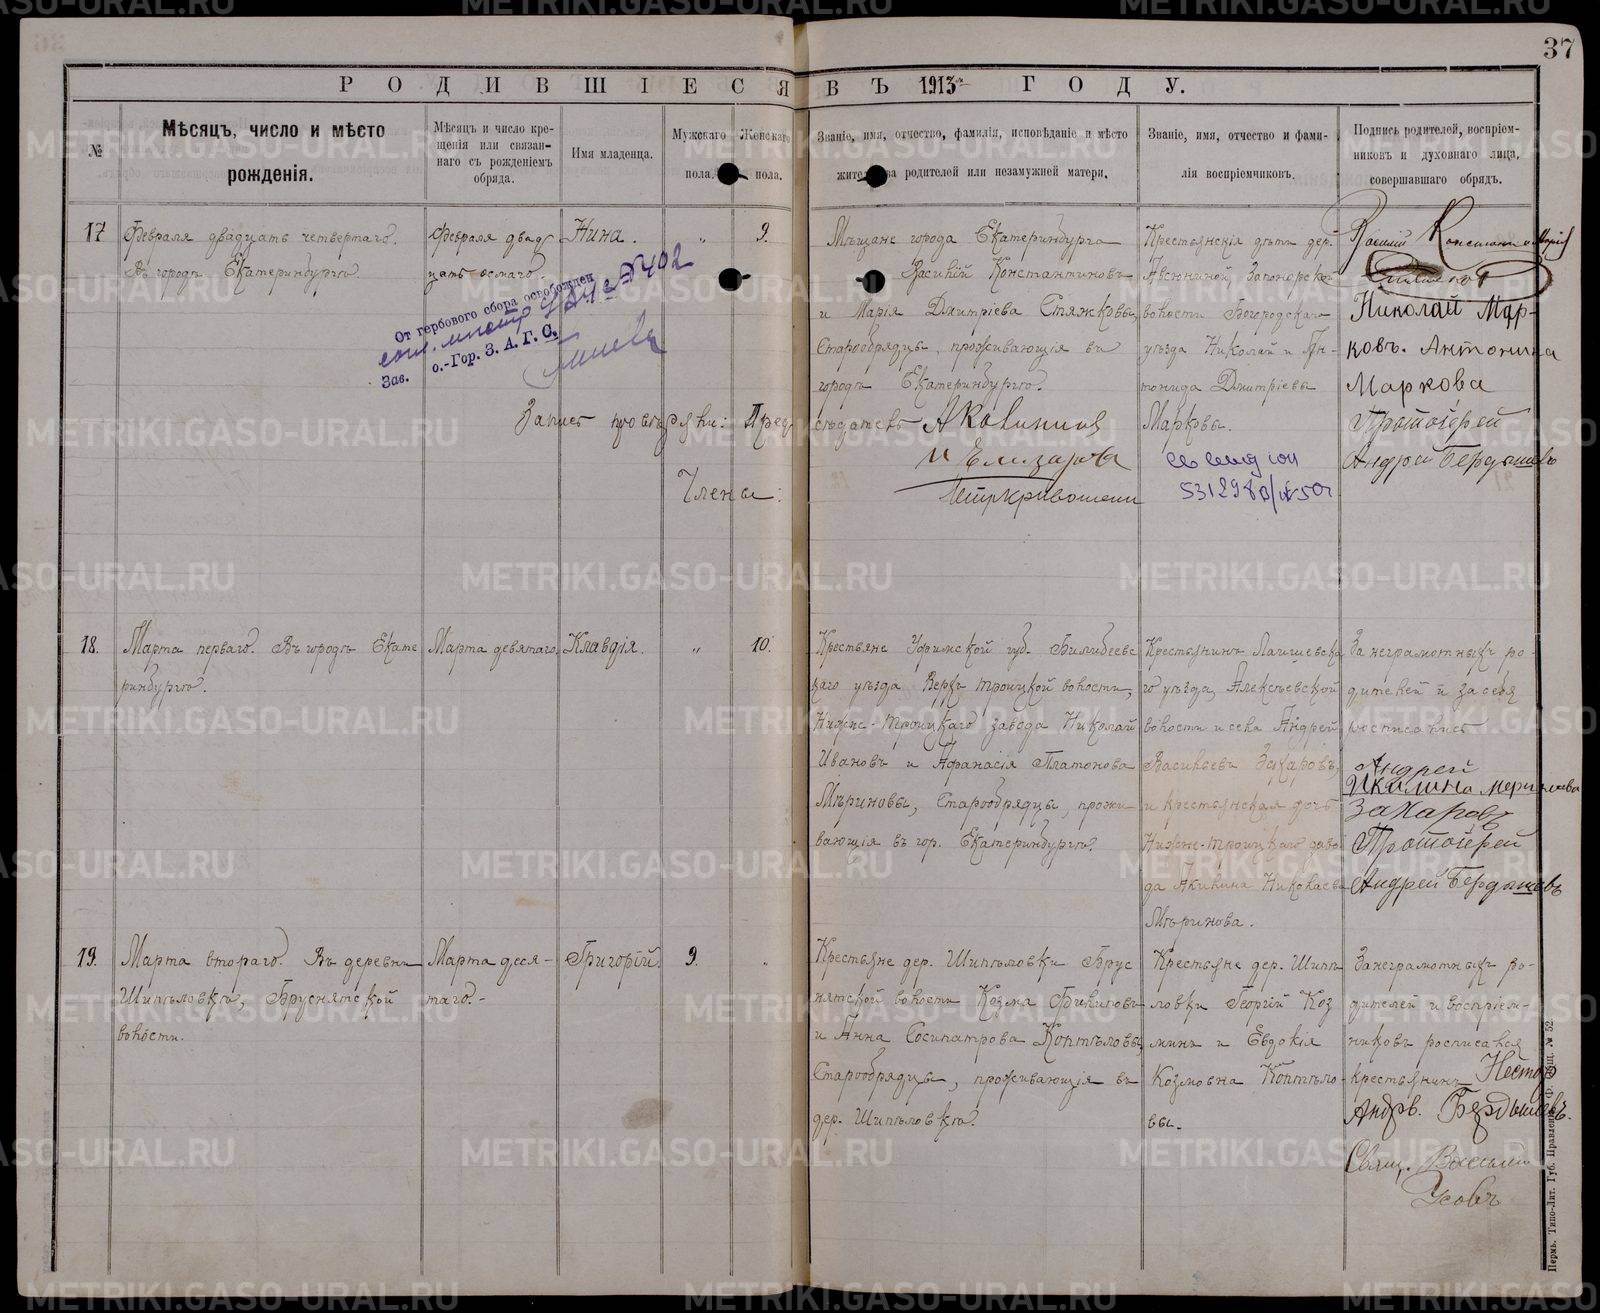 37
РОДИВШІЕСЯ ВЪ 1913 ГОДУ.
№
Мѣсяцъ, число и мѣсто
рожденія.
Мѣсяцъ и число кре-
щенія или связан-
наго съ рожденіемъ
обряда.
Имя младенца.
Мужскаго
пола.
Женскаго
пола.
Званіе, имя, отчество, фамилія, исповѣданіе и мѣсто
жительства родителей или незамужней матери.
Званіе, имя, отчество и фами-
лія воспріемчиковъ.
Подпись родителей, воспріем-
никовъ и духовнаго лица,
совершавшаго обрядъ.
17
Февраля двадцать четвертаго.
Въ городѣ Екатеринбургѣ.
Февраля двад
цать осьмаго.
Нина.
„
9.
Мѣщане города Екатеринбурга
Василій Константиновъ
и Марія Дмитріева Стяжковы,
Старообрядцы, проживающія въ
городѣ Екатеринбургѣ.
Крестьянскія дѣти дер.
Авсюниной, Запонорской
волости Богородскаго
уѣзда Николай и Ан-
тонида Дмитріевы
Марковы.
Николай Мар-
ковъ. Антонина
Маркова
Протоіерей
Андрей Бердышевъ
От гербового сбора освобожден
Зав. о.-Гор. З. А. Г. С.
№ 402
Запись провѣряли: Пред
сѣдатель
Члены:
Елизаровъ
18.
Марта перваго. Въ городѣ Екате
ринбургѣ.
Марта девятаго
Клавдія.
„
10.
Крестьяне Уфимской губ. Билибеевс
каго уѣзда Верхъ Троицкой волости,
Нижне-Троицкаго завода Николай
Ивановъ и Афанасія Платонова
Мѣриновы, Старообрядцы, прожи
вающія въ гор. Екатеринбургѣ.
Крестьянинъ Лаишевска
го уѣзда, Алексѣевской
волости и села Андрей
Васильевъ Захаровъ,
и крестьянская дочь
Нижне-Троицкаго заво
да Акилина Николаева
Мѣринова.
За неграмотныхъ ро-
дителей и за себя
росписались
Андрей
Захаровъ
Протоіерей
Андрей Бердышевъ
19.
Марта втораго. Въ деревни
Шипѣловкѣ, Бруснятской
волости.
Марта деся-
таго.-
Григорій.
9.
„
Крестьяне дер. Шипѣловки Брус
нятской волости Козма Филиповъ
и Анна Сосипатрова Коптѣловы,
Старообрядцы, проживающія въ
дер. Шипѣловкѣ.
Крестьяне дер. Шипѣ
ловки Георгій Коз
минъ и Евдокія
Козмовна Коптѣло-
вы.
За неграмотныхъ ро-
дителей и воспріем-
никовъ росписался
крестьянинъ Нестор
Андр. Бердышевъ.
Свящ. Василій
Усовъ
Пермь. Типо-Лит. Губ. Правленія. № 52.
METRIKI.GASO-URAL.RU